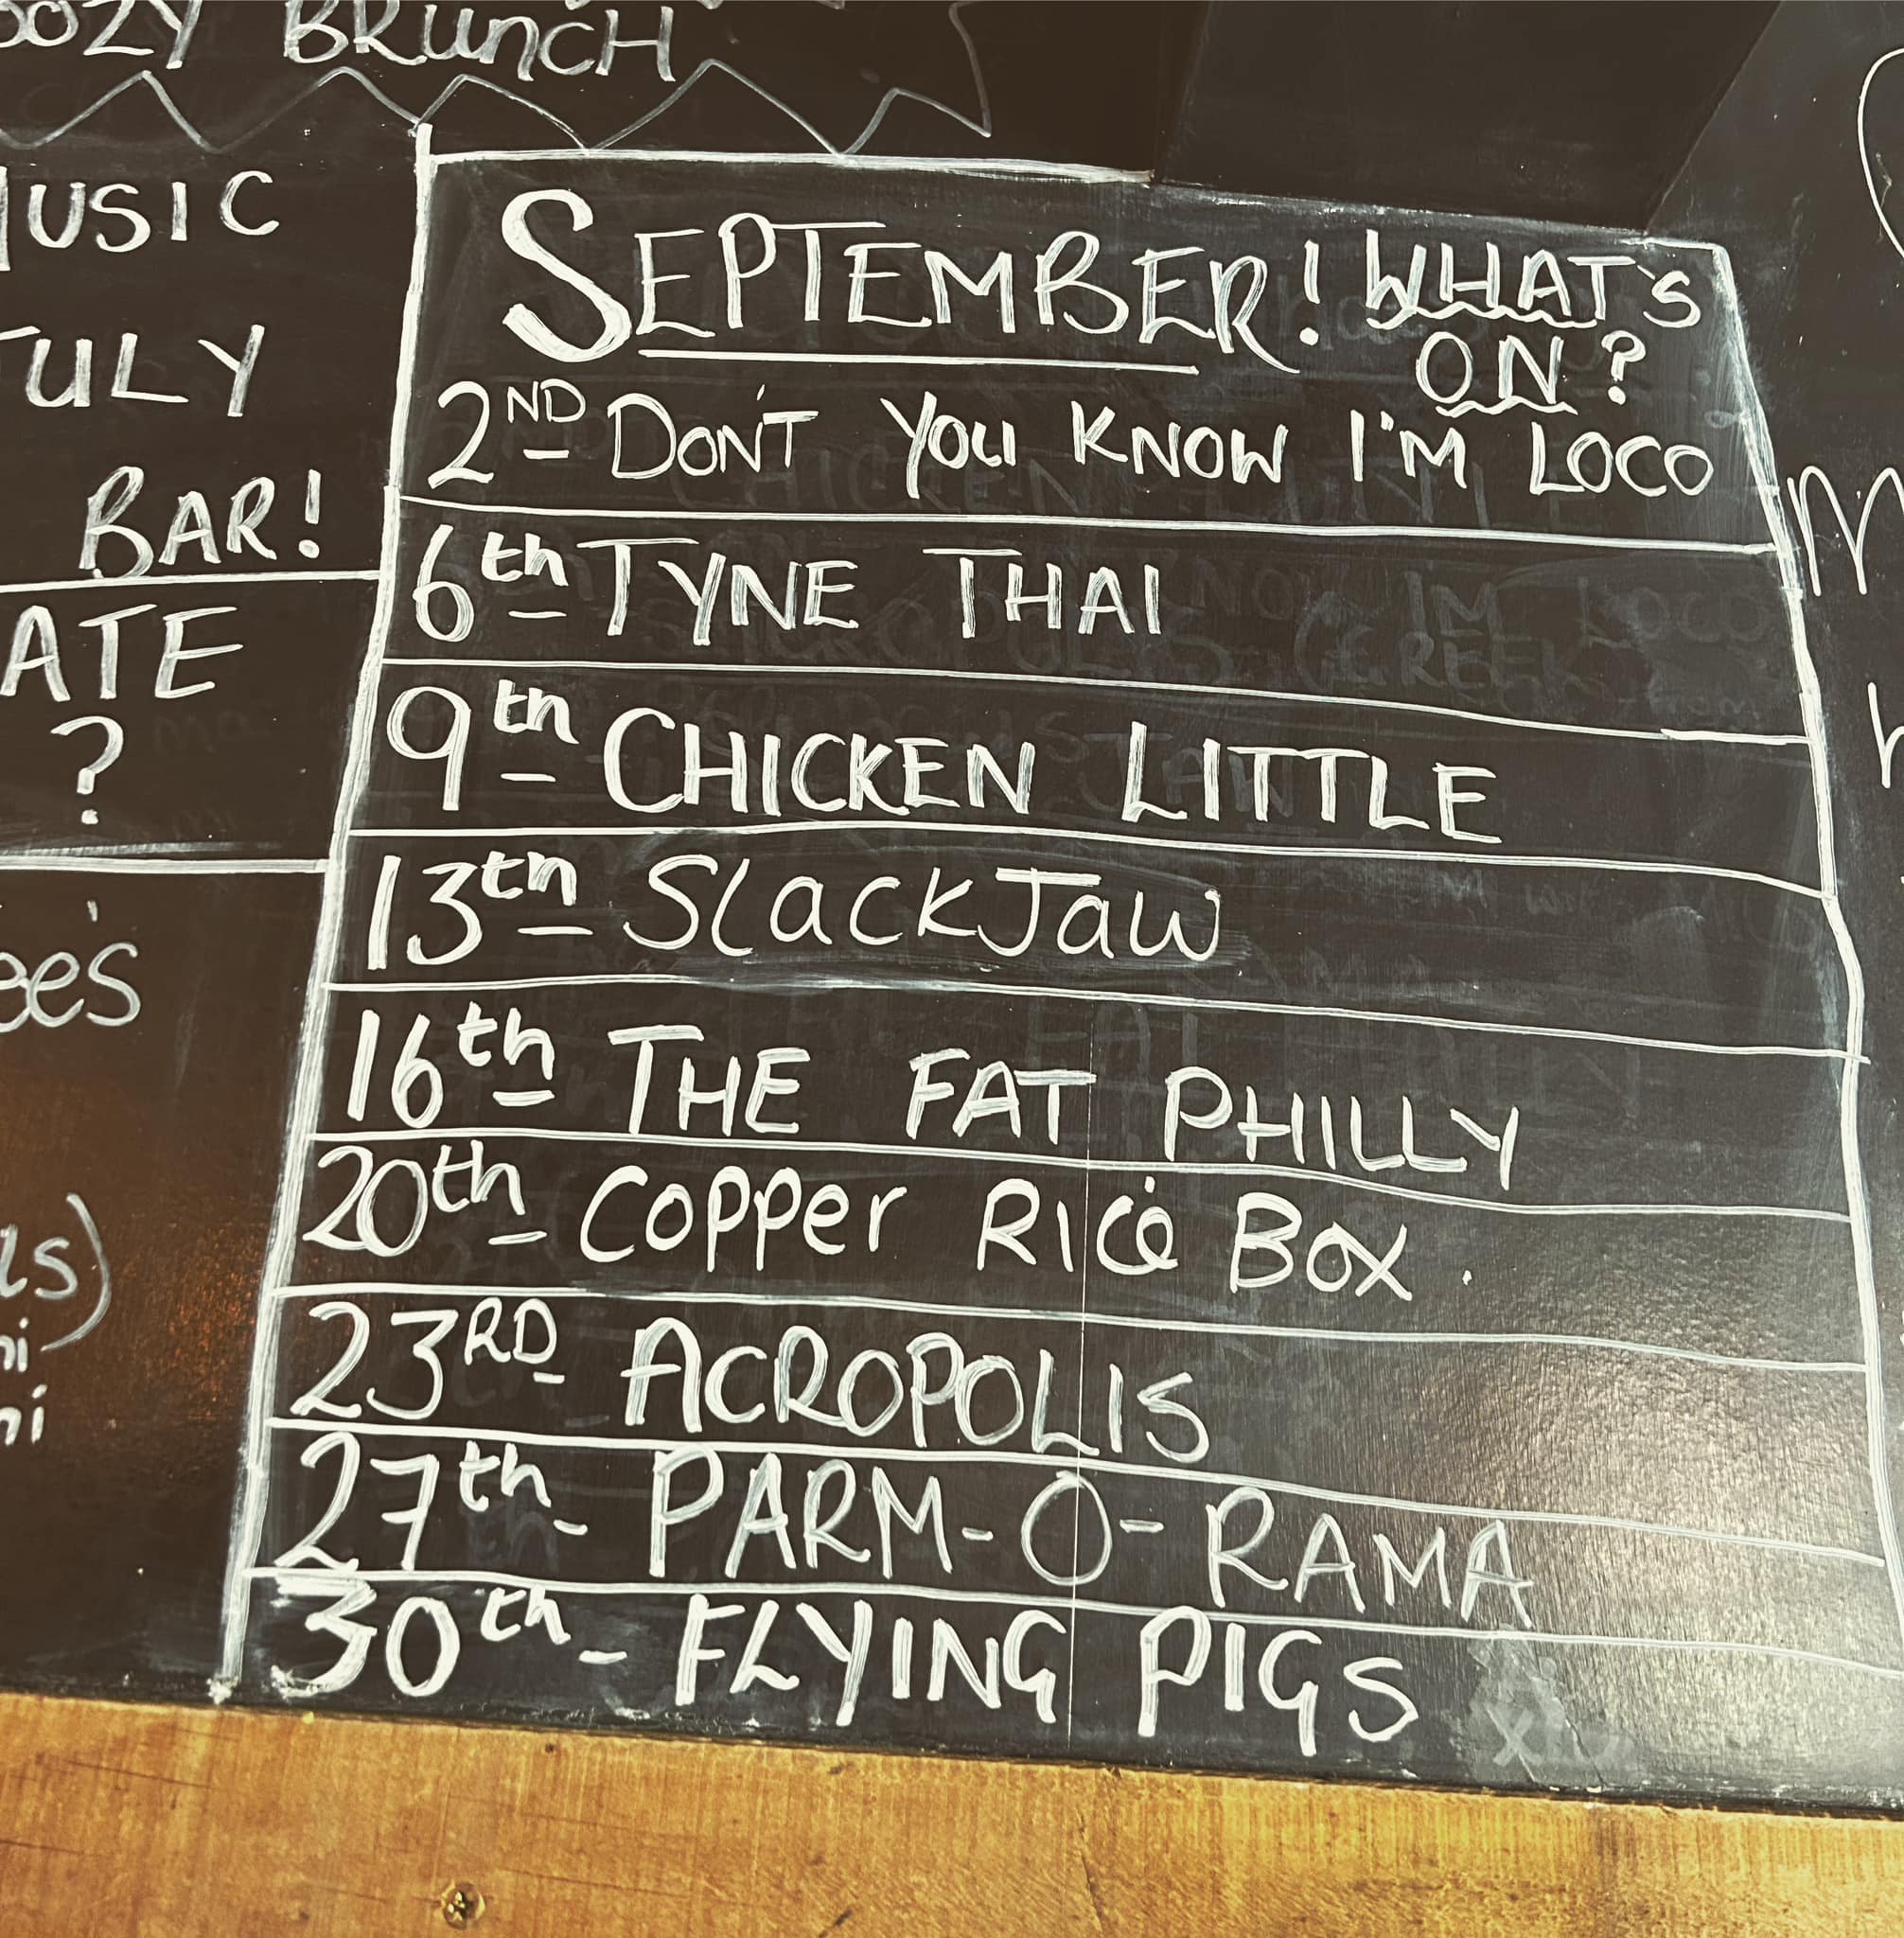 BRUNCH
MUSIC
JULY
BAR!
ATE
?
SEPTEMBER! WHAT'S
ON?
2ND - DON'T YOU KNOW I'M LOCO
6th - TYNE THAI
9th - CHICKEN LITTLE
13th - SlackJaw
16th - THE FAT PHILLY
20th - Copper Rice Box.
23RD - ACROPOLIS
27th - PARM-O-RAMA
30th - FLYING PIGS